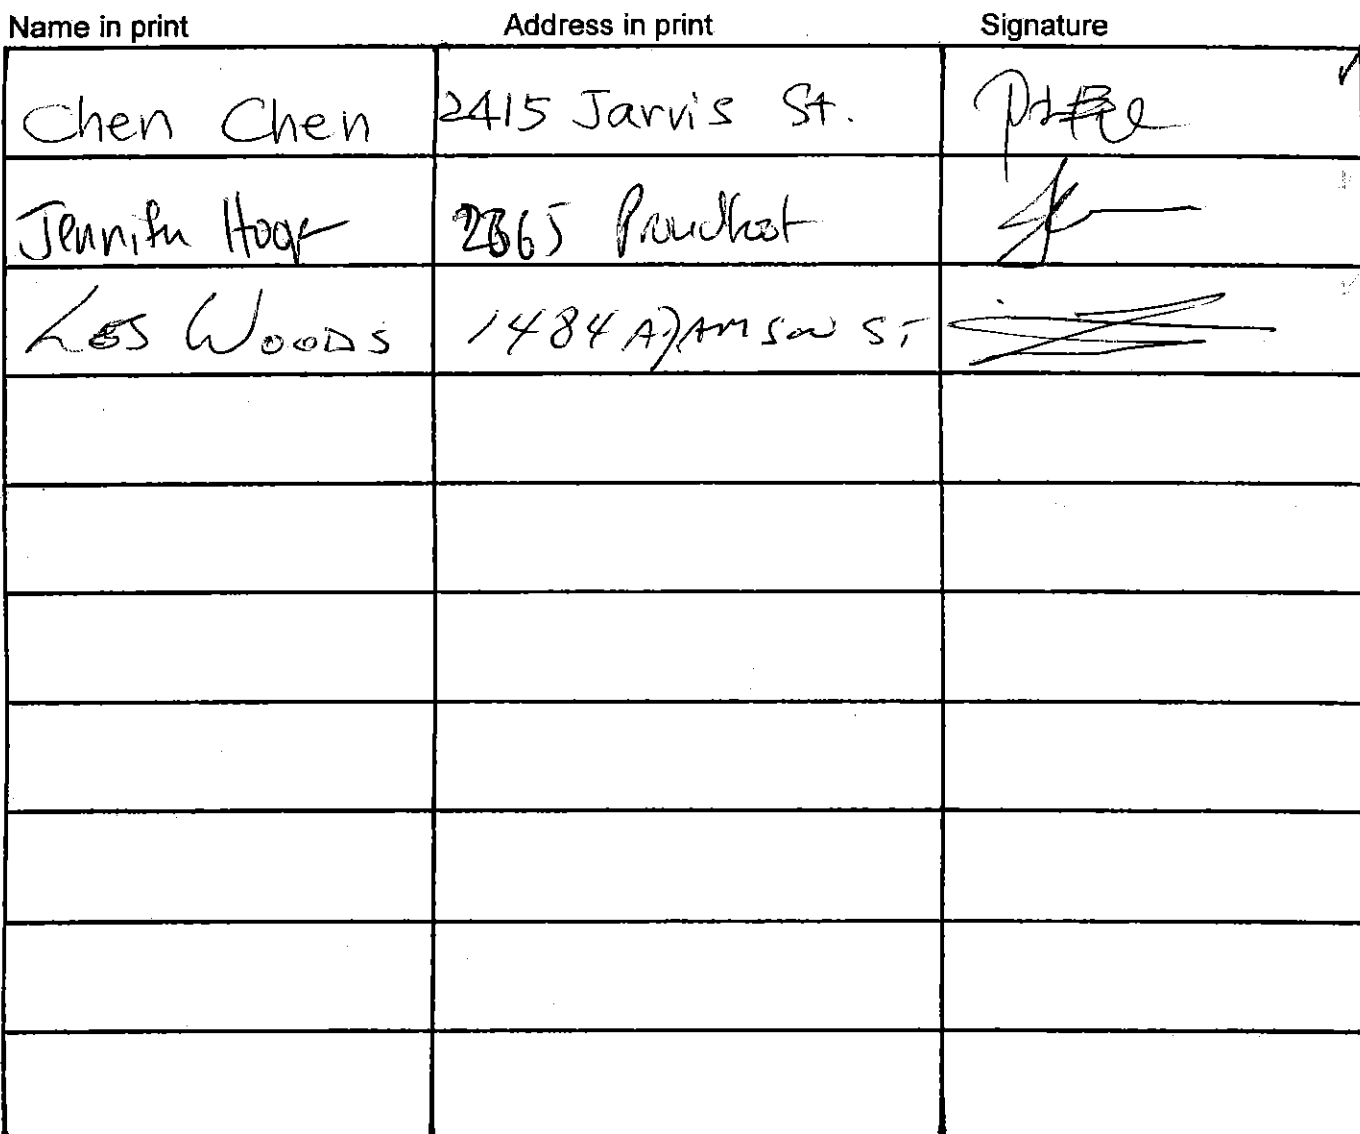 Name in print Address in print Signature
Chen Chen 2415 Jarvis St.
Jennifer 2365
Les Woods 1484 Adamson St